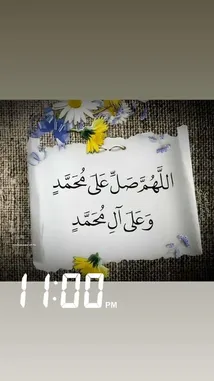 اللَّهُمَّ صَلِّ عَلَى مُحَمَّدٍ
وَعَلَى آلِ مُحَمَّدٍ
11:00 PM